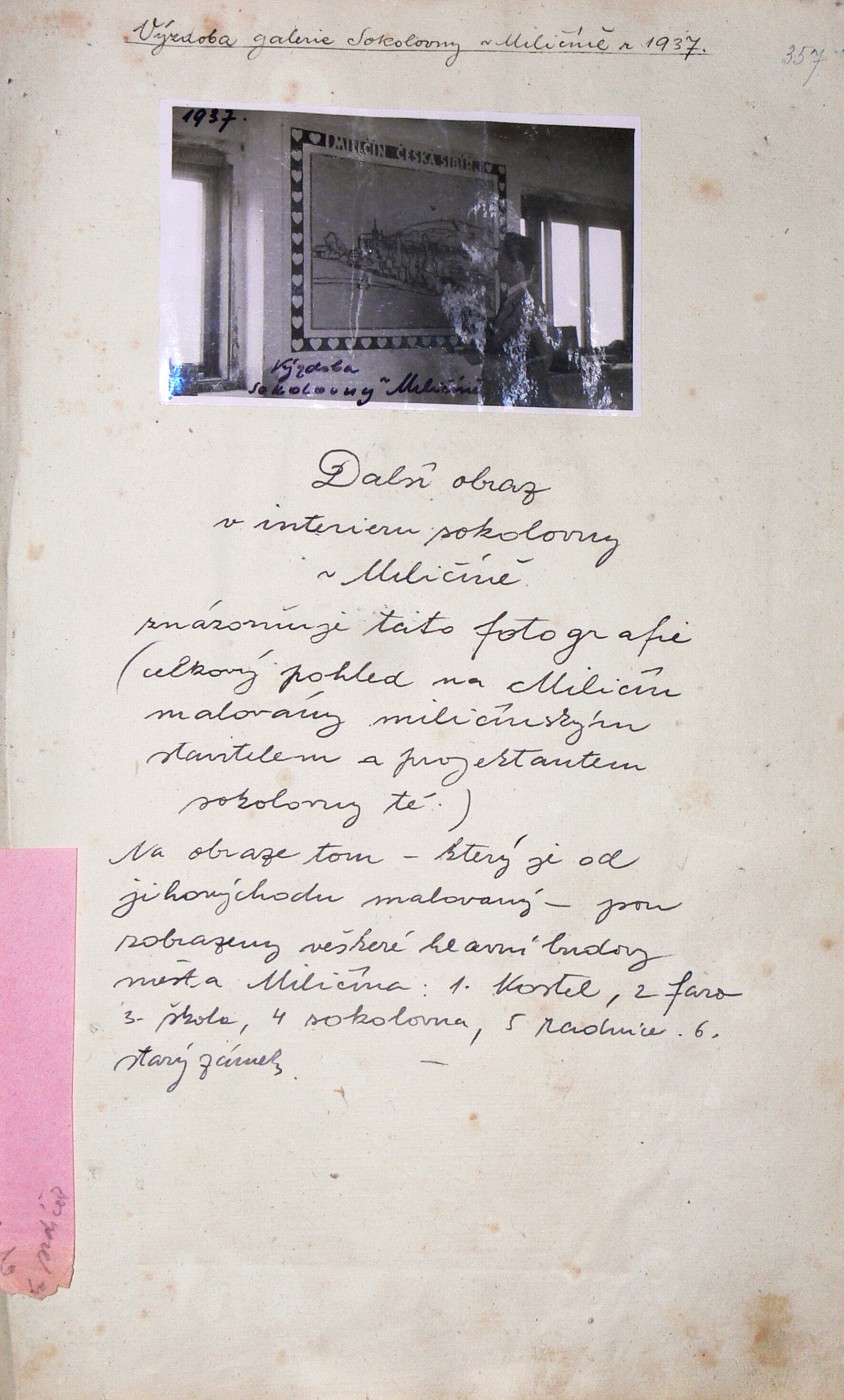 Výzdoba galerie Sokolovny v Miličíně r 1937.
357
1937.
MILIČÍN ČESKÁ SIBIŘ
Výzdoba
sokolovny v Miličíně
Další obraz
v interieru sokolovny
v Miličíně
znázorňuje tato fotografie
(celkový pohled na Miličín
malovaný miličínským
stavitelem a projektantem
sokolovny té.)
Na obraze tom – který je od
jihovýchodu malovaný – jsou
zobrazeny veškeré hlavní budovy
města Miličína: 1. Kostel, 2 fara
3. škola, 4 sokolovna, 5 radnice. 6.
starý zámek. –